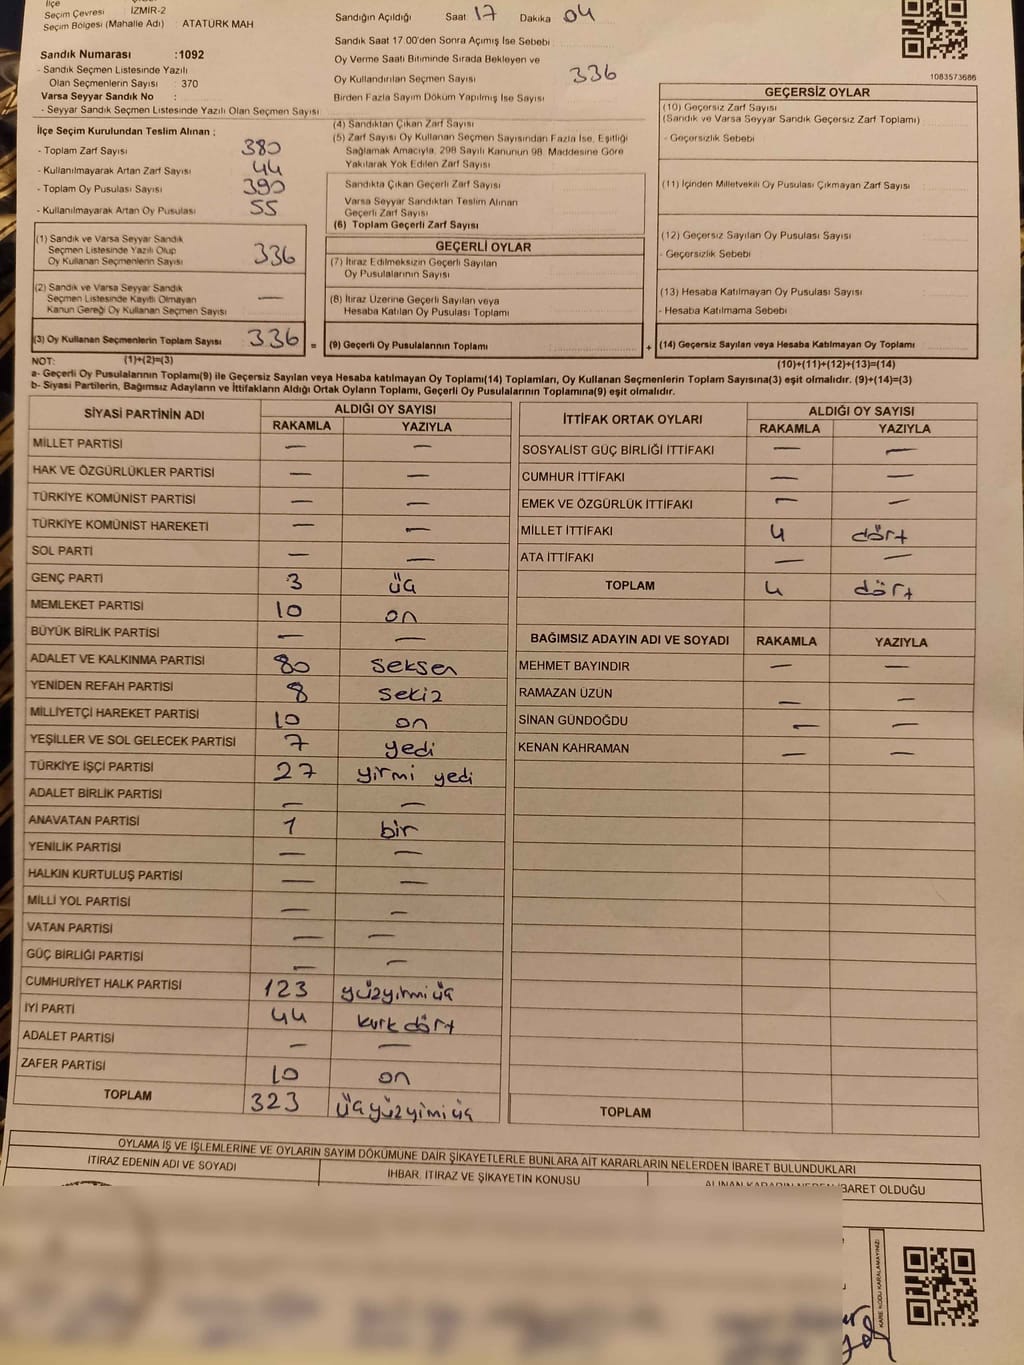 İlçe
Seçim Çevresi : İZMİR-2
Seçim Bölgesi (Mahalle Adı) : ATATÜRK MAH
Sandık Numarası :1092
- Sandık Seçmen Listesinde Yazılı
Olan Seçmenlerin Sayısı : 370
Varsa Seyyar Sandık No :
- Seyyar Sandık Seçmen Listesinde Yazılı Olan Seçmen Sayısı
İlçe Seçim Kurulundan Teslim Alınan :
- Toplam Zarf Sayısı 380
- Kullanılmayarak Artan Zarf Sayısı 44
- Toplam Oy Pusulası Sayısı 390
- Kullanılmayarak Artan Oy Pusulası 55
(1) Sandık ve Varsa Seyyar Sandık
Seçmen Listesinde Yazılı Olup
Oy Kullanan Seçmenlerin Sayısı 336
(2) Sandık ve Varsa Seyyar Sandık
Seçmen Listesinde Kayıtlı Olmayan
Kanun Gereği Oy Kullanan Seçmen Sayısı —
(3) Oy Kullanan Seçmenlerin Toplam Sayısı 336
Sandığın Açıldığı Saat 17 Dakika 04
Sandık Saat 17.00'den Sonra Açımış İse Sebebi
Oy Verme Saati Bitiminde Sırada Bekleyen ve
Oy Kullandırılan Seçmen Sayısı 336
Birden Fazla Sayım Döküm Yapılmış İse Sayısı
(4) Sandıktan Çıkan Zarf Sayısı
(5) Zarf Sayısı Oy Kullanan Seçmen Sayısından Fazla İse, Eşitliği
Sağlamak Amacıyla, 298 Sayılı Kanunun 98. Maddesine Göre
Yakılarak Yok Edilen Zarf Sayısı
Sandıkta Çıkan Geçerli Zarf Sayısı
Varsa Seyyar Sandıktan Teslim Alınan
Geçerli Zarf Sayısı
(6) Toplam Geçerli Zarf Sayısı
GEÇERLİ OYLAR
(7) İtiraz Edilmeksizin Geçerli Sayılan
Oy Pusulalarının Sayısı
(8) İtiraz Üzerine Geçerli Sayılan veya
Hesaba Katılan Oy Pusulası Toplamı
= (9) Geçerli Oy Pusulalarının Toplamı
1083573686
GEÇERSİZ OYLAR
(10) Geçersiz Zarf Sayısı
(Sandık ve Varsa Seyyar Sandık Geçersiz Zarf Toplamı)
- Geçersizlik Sebebi
(11) İçinden Milletvekili Oy Pusulası Çıkmayan Zarf Sayısı
(12) Geçersiz Sayılan Oy Pusulası Sayısı
- Geçersizlik Sebebi
(13) Hesaba Katılmayan Oy Pusulası Sayısı
- Hesaba Katılmama Sebebi
+ (14) Geçersiz Sayılan veya Hesaba Katılmayan Oy Toplamı
NOT: (1)+(2)=(3) (10)+(11)+(12)+(13)=(14)
a- Geçerli Oy Pusulalarının Toplamı(9) ile Geçersiz Sayılan veya Hesaba katılmayan Oy Toplamı(14) Toplamları, Oy Kullanan Seçmenlerin Toplam Sayısına(3) eşit olmalıdır. (9)+(14)=(3)
b- Siyasi Partilerin, Bağımsız Adayların ve İttifakların Aldığı Ortak Oyların Toplamı, Geçerli Oy Pusulalarının Toplamına(9) eşit olmalıdır.
SİYASİ PARTİNİN ADI ALDIĞI OY SAYISI
RAKAMLA YAZIYLA
MİLLET PARTİSİ — —
HAK VE ÖZGÜRLÜKLER PARTİSİ — —
TÜRKİYE KOMÜNİST PARTİSİ — —
TÜRKİYE KOMÜNİST HAREKETİ — —
SOL PARTİ — —
GENÇ PARTİ 3 üç
MEMLEKET PARTİSİ 10 on
BÜYÜK BİRLİK PARTİSİ — —
ADALET VE KALKINMA PARTİSİ 80 seksen
YENİDEN REFAH PARTİSİ 8 sekiz
MİLLİYETÇİ HAREKET PARTİSİ 10 on
YEŞİLLER VE SOL GELECEK PARTİSİ 7 yedi
TÜRKİYE İŞÇİ PARTİSİ 27 yirmi yedi
ADALET BİRLİK PARTİSİ — —
ANAVATAN PARTİSİ 1 bir
YENİLİK PARTİSİ — —
HALKIN KURTULUŞ PARTİSİ — —
MİLLİ YOL PARTİSİ — —
VATAN PARTİSİ — —
GÜÇ BİRLİĞİ PARTİSİ — —
CUMHURİYET HALK PARTİSİ 123 yüzyirmiüç
İYİ PARTİ 44 kırk dört
ADALET PARTİSİ — —
ZAFER PARTİSİ 10 on
TOPLAM 323 üçyüzyimiüç
İTTİFAK ORTAK OYLARI ALDIĞI OY SAYISI
RAKAMLA YAZIYLA
SOSYALİST GÜÇ BİRLİĞİ İTTİFAKI — —
CUMHUR İTTİFAKI — —
EMEK VE ÖZGÜRLÜK İTTİFAKI — —
MİLLET İTTİFAKI 4 dört
ATA İTTİFAKI — —
TOPLAM 4 dört
BAĞIMSIZ ADAYIN ADI VE SOYADI RAKAMLA YAZIYLA
MEHMET BAYINDIR — —
RAMAZAN UZUN — —
SİNAN GÜNDOĞDU — —
KENAN KAHRAMAN — —
TOPLAM
OYLAMA İŞ VE İŞLEMLERİNE VE OYLARIN SAYIM DÖKÜMÜNE DAİR ŞİKAYETLERLE BUNLARA AİT KARARLARIN NELERDEN İBARET BULUNDUKLARI
İTİRAZ EDENİN ADI VE SOYADI
İHBAR, İTİRAZ VE ŞİKAYETİN KONUSU
ALINAN KARARIN NEDEN İBARET OLDUĞU
KARE KODU KARALAMAYINIZ!